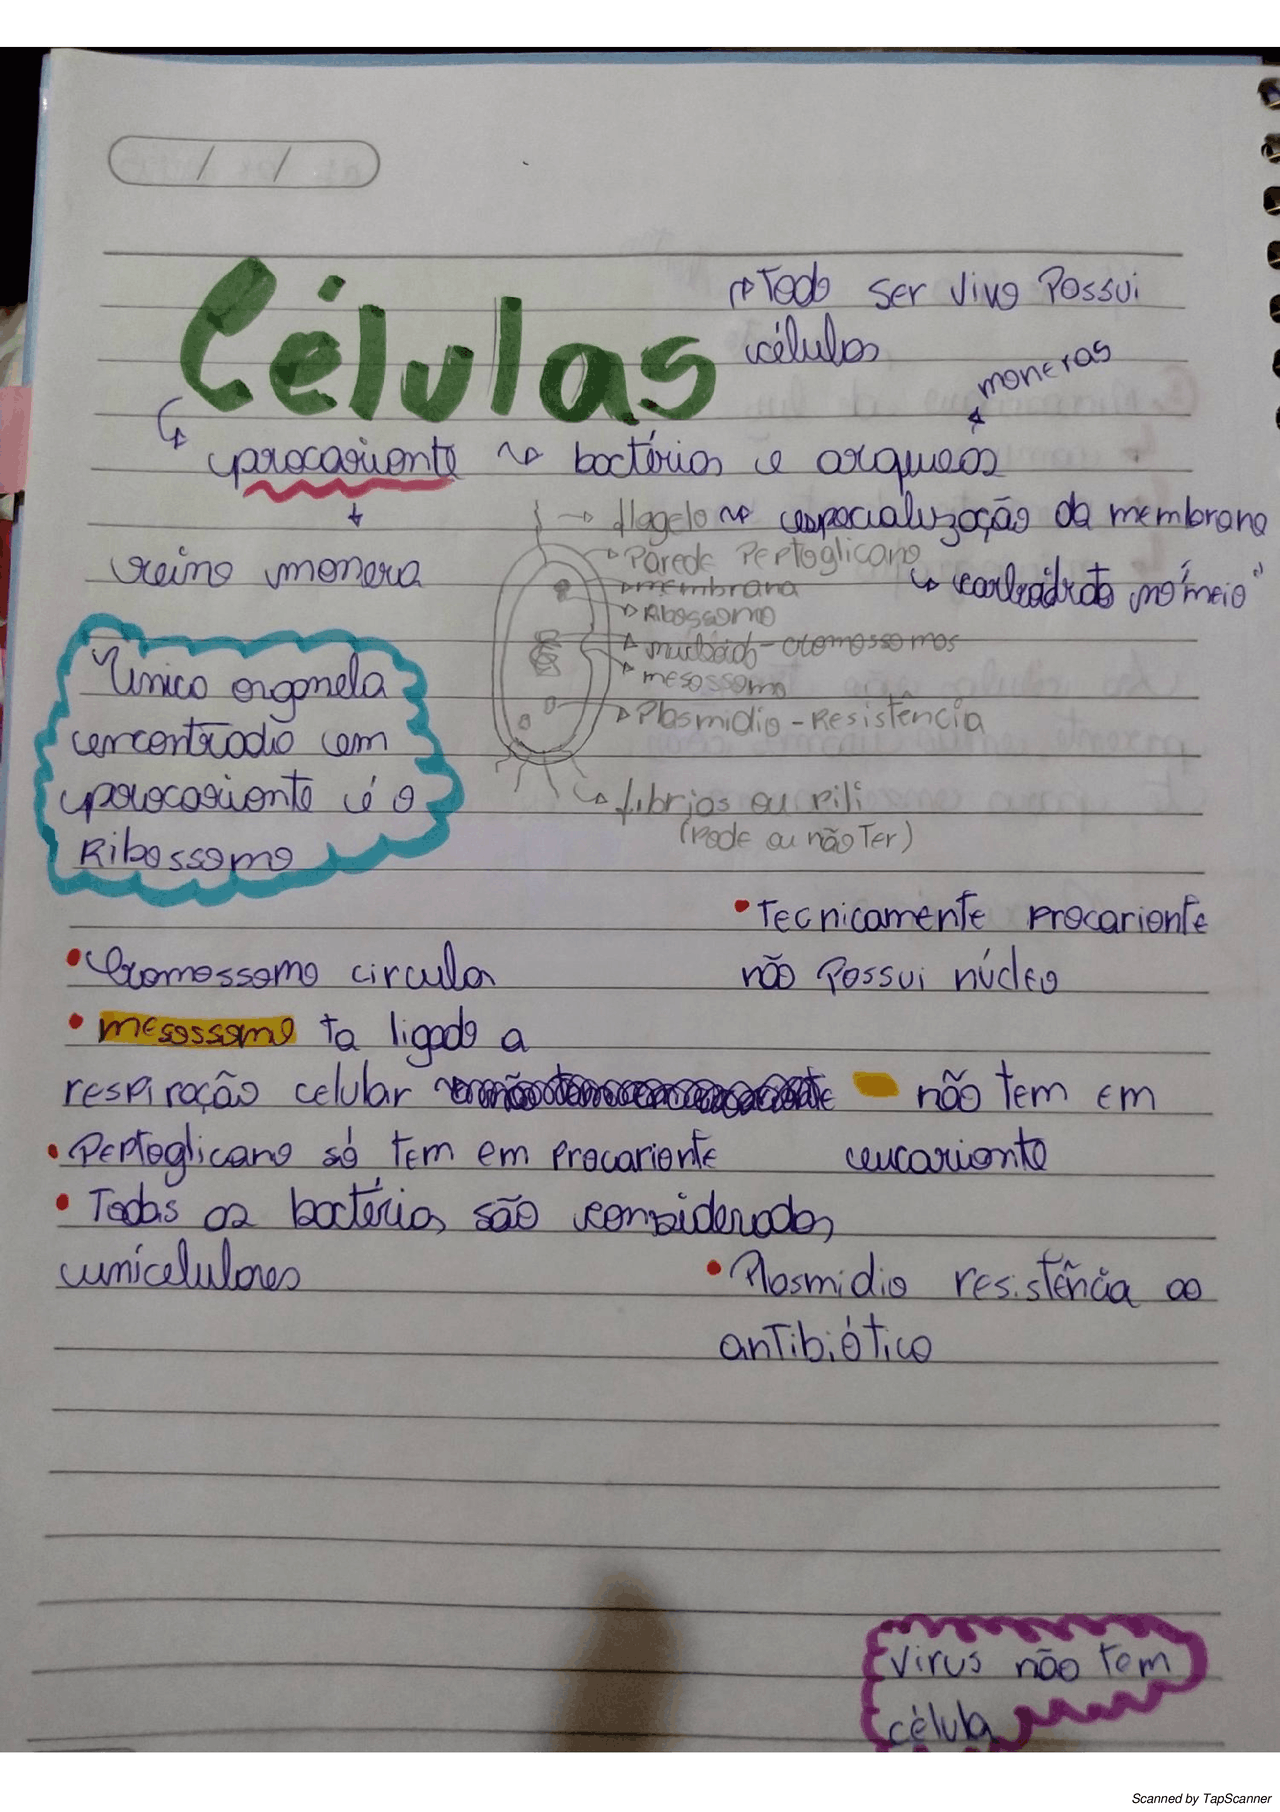 Células
→ Todo ser vivo Possui
células
moneras
procarionte → bactérias e arqueas
reino monera
flagelo → especialização da membrana
Parede Peptoglicano
membrana
↳ no "meio"
Ribossomo
nucleóide - cromossomos
mesossomo
Plasmidio - Resistência
fibrias ou Pili
(Pode ou não Ter)
Único organela
encontrado em
procarionte é o
Ribossomo
• Tecnicamente Procarionte
não Possui núcleo
• Cromossomo circula
• mesossomo ta ligado a
respiração celular não tem em
eucarionto
• Peptoglicano só tem em Procarionte
• Todas as bactérias são consideradas
unicelulares
• Plasmidio resistência ao
antibiótico
Virus não tem
célula
Scanned by TapScanner